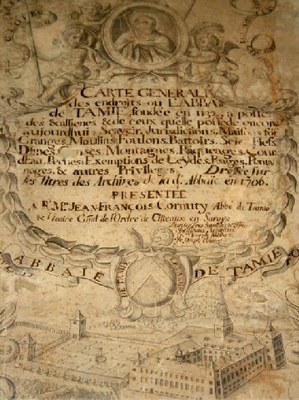 CARTE GENERALE
des endroits ou L'ABBAYE
de TAMIE fondée en 1132 a possedé
des & de ceux quelle possede encore
aujourdhui Sçavoir Jurisdictions, Maisons for
Granges, Moulins Foulons, Battoirs, Scie, Fiefs
Dimes, Montagnes, Paquerages & Cour
deau, Peches; Exemptions de Leyde & Peages, Ponto
nages, & autres Privilleges. Dressée sur
les titres des Archives de la d. Abbaie en 1706.
PRESENTEE
A Rd. Mre. JEAN FRANÇOIS Cornuty Abbé de Tamie
& Vicaire Gnāl de l'Ordre de Citeaux en Savoye
ABBAIE DE TAMIE